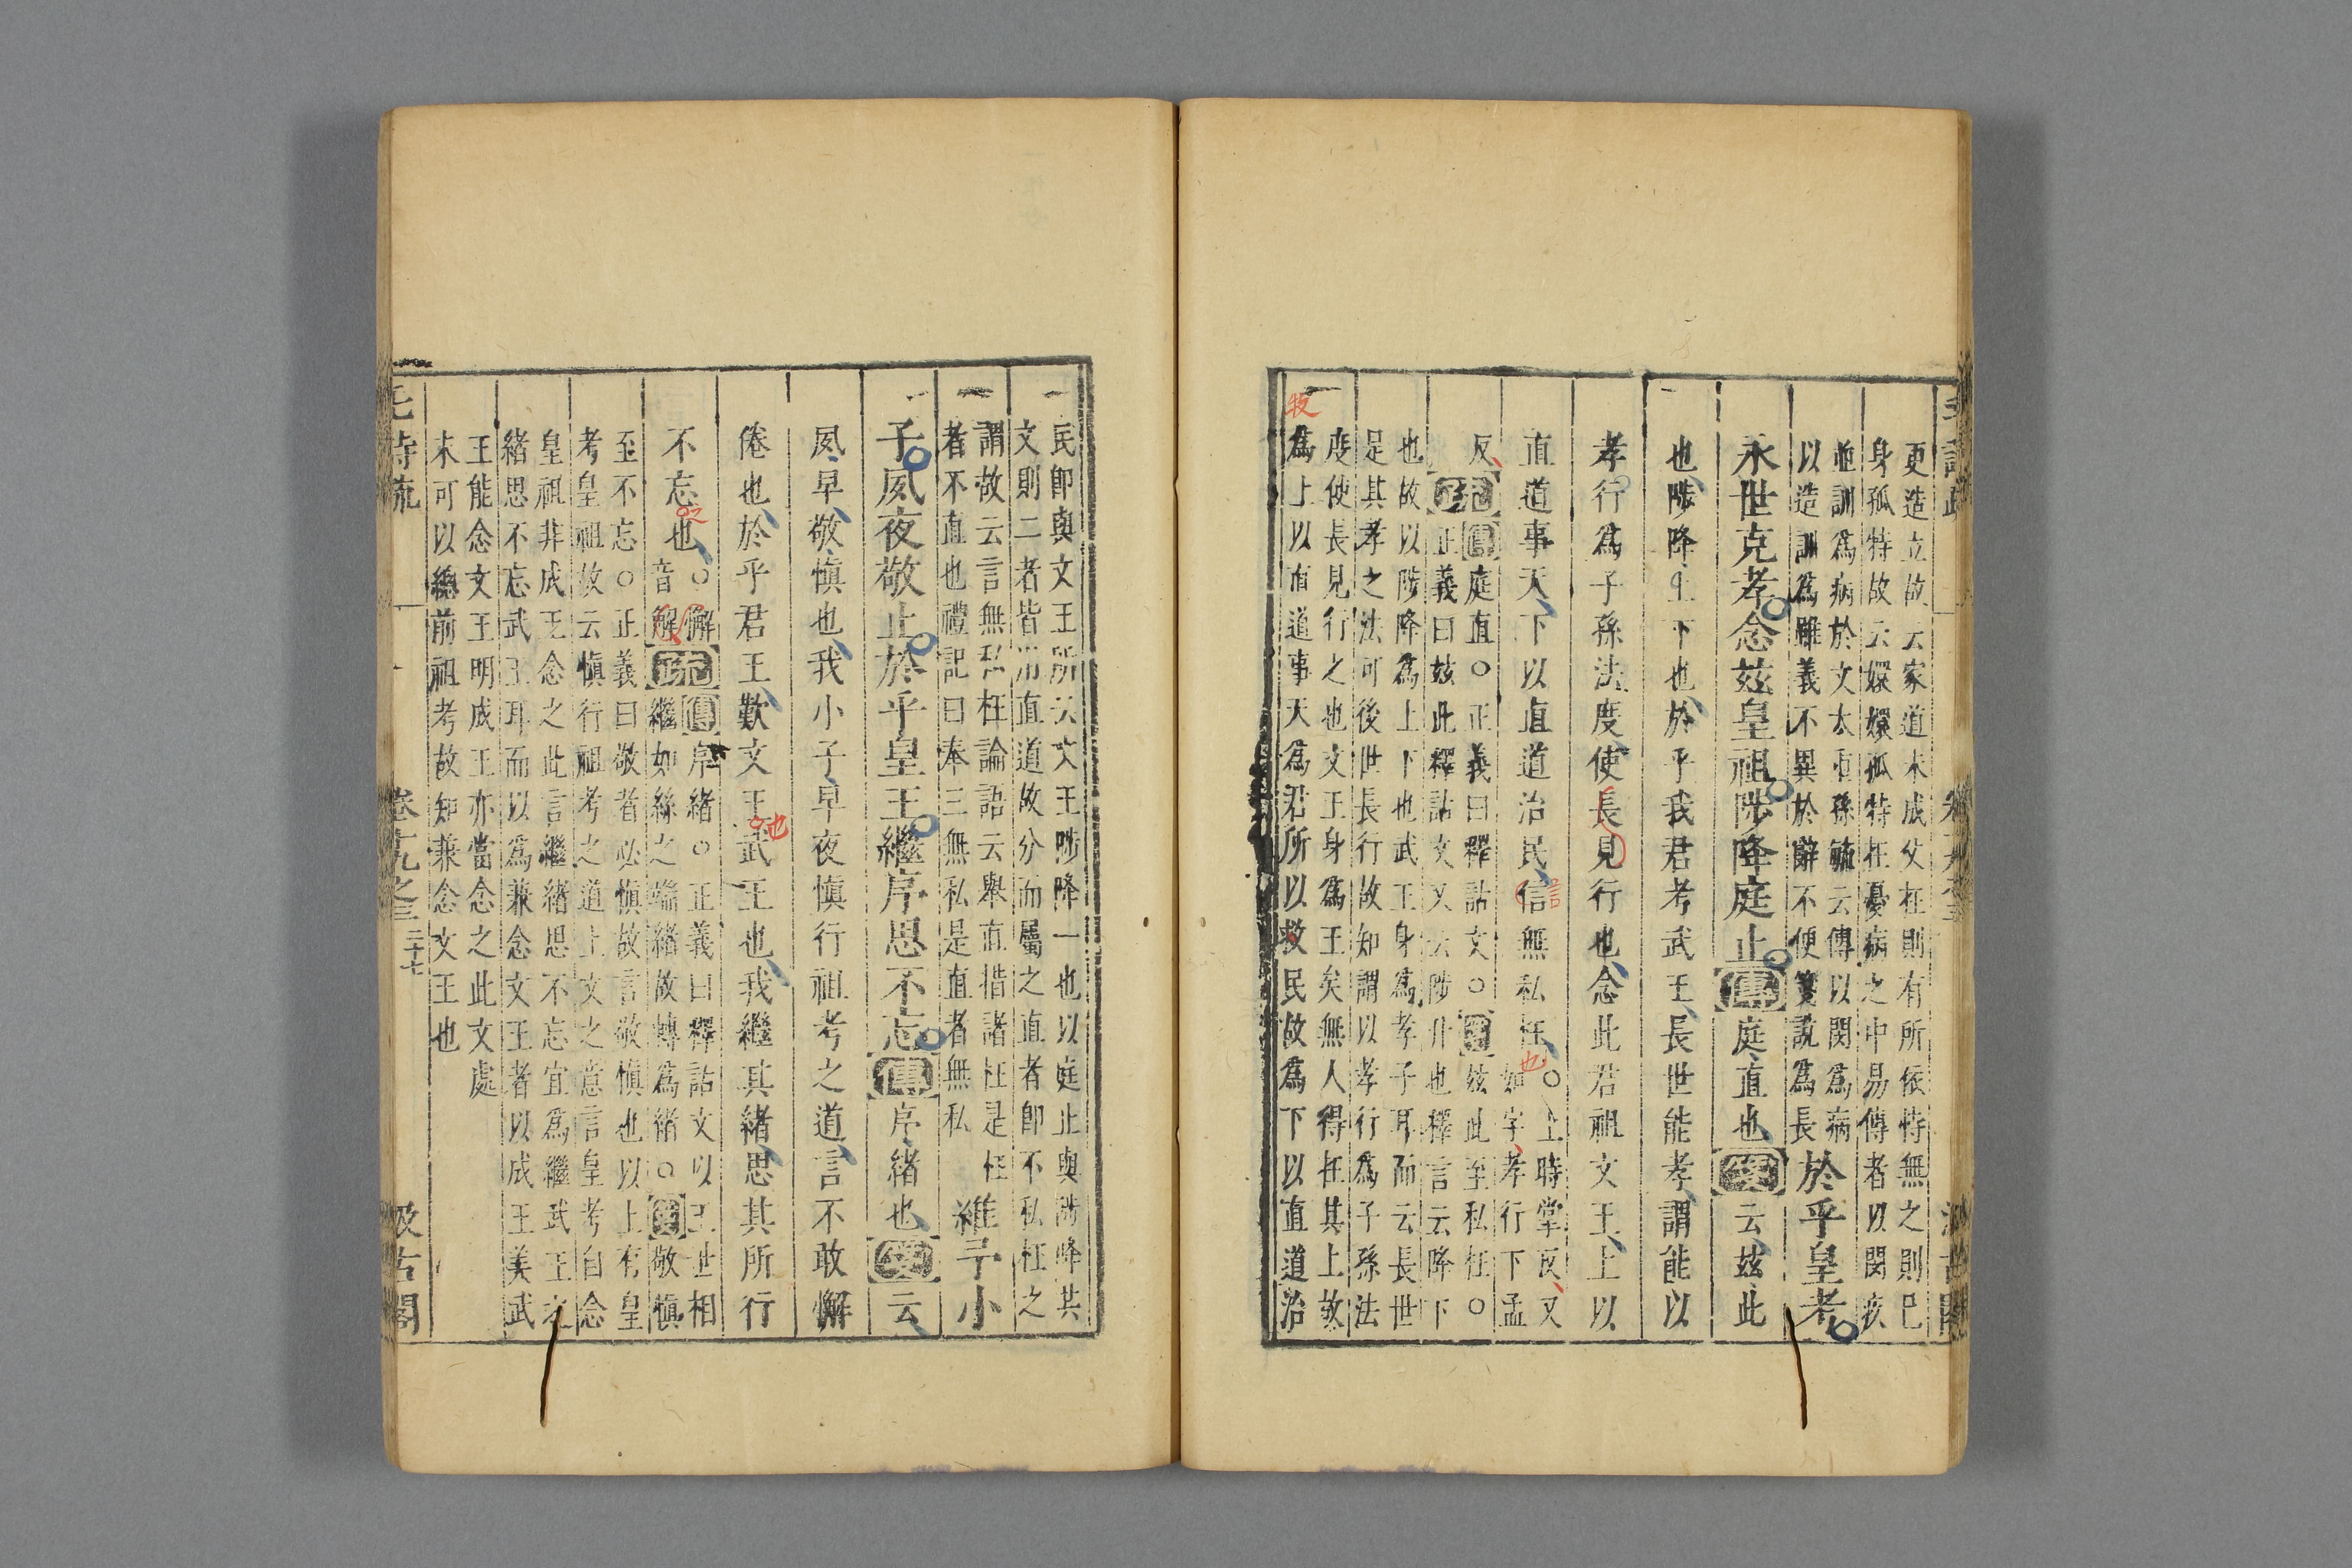 更造立故云家道未成父在則有所依恃無之則已
身孤特故云嬛嬛孤特在憂病之中易傳者以閔疚
並訓為病於文太重孫毓云傳以閔為病
以造訓為雖義不異於辭不便箋說為長於乎皇考
永世克孝念茲皇祖陟降庭止傳庭直也箋云茲此
也陟降上下也於乎我君考武王長世能孝謂能以
孝行為子孫法度使長見行也念此君祖文王上以
直道事天下以直道治民信無私枉○上時掌反又
如字孝行下孟
反疏傳庭直○正義曰釋詁文○箋茲此至私枉○
正義曰茲此釋詁文又云陟升也釋言云降下
也故以陟降為上下也武王身為孝子耳而云長世
足其孝之法可後世長行故知謂以孝行為子孫法
度使長見行之也文王身為王矣無人得在其上故
為上以直道事天為君所以救民故為下以直道治
牧
信
也
毛詩疏
卷十九之三
二十七
汲古閣
民即與文王所云文王陟降一也以庭止與陟降共
文則二者皆用直道故分而屬之直者即不私枉之
謂故云言無私枉論語云舉直措諸枉是枉
者不直也禮記曰奉三無私是直者無私維予小
子夙夜敬止於乎皇王繼序思不忘傳序緒也箋云
夙早敬慎也我小子早夜慎行祖考之道言不敢懈
倦也於乎君王歎文王武王也我繼其緒思其所行
不忘也○懈
音解疏傳序緒○正義曰釋詁文以王世相
繼如絲之端緒故轉為緒○箋敬慎
至不忘○正義曰敬者必慎故言敬慎也以上有皇
考皇祖故云慎行祖考之道上文之意言皇考自念
皇祖非成王念之此言繼緒思不忘宜為繼武王之
緒思不忘武王耳而以為兼念文王者以成王美武
王能念文王明成王亦當念之此文處
末可以總前祖考故知兼念文王也
之
也